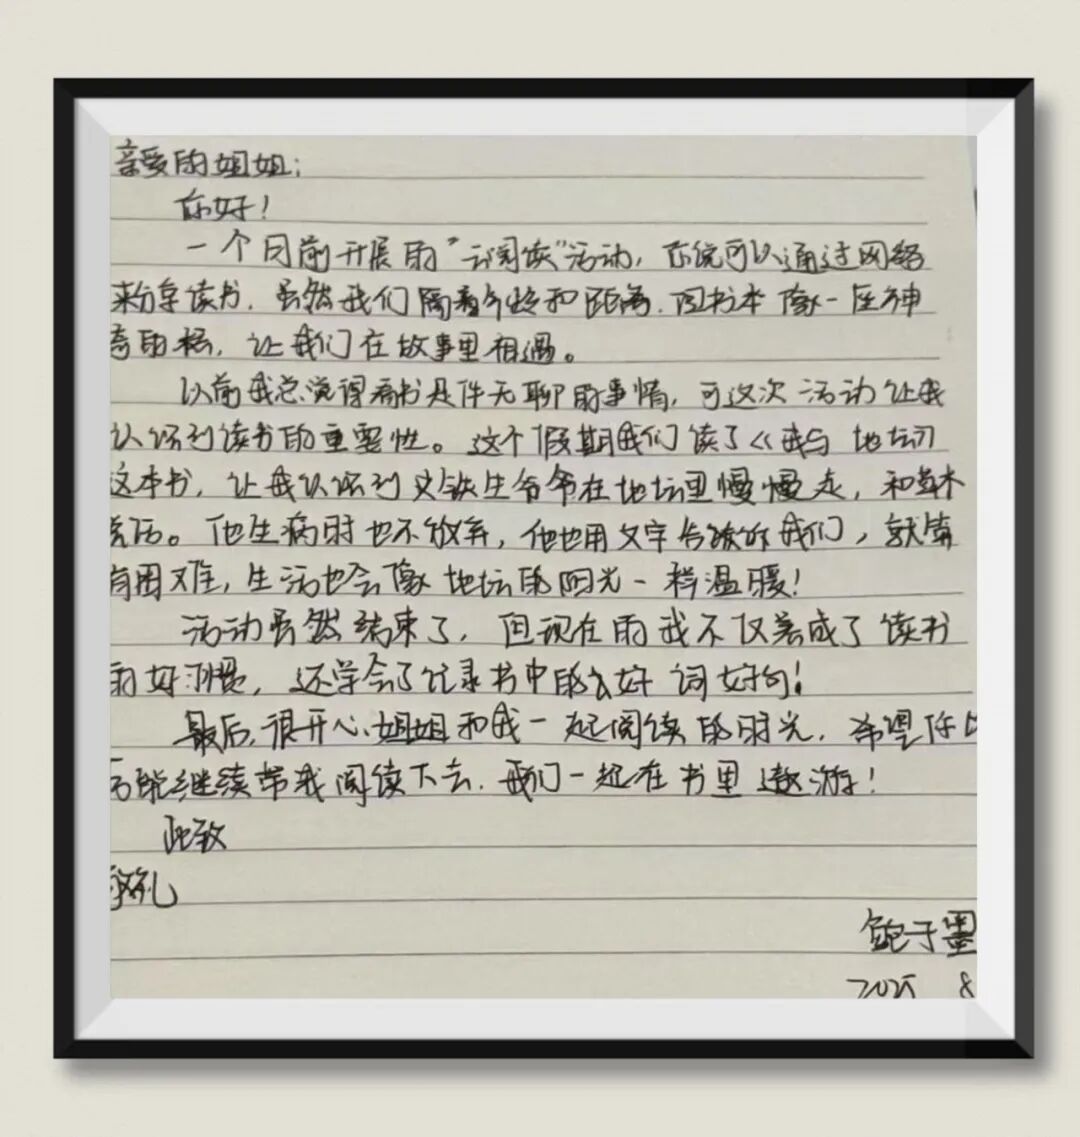 亲爱的姐姐：
你好！
一个月前开展的“云阅读”活动，系统可以通过网络
来分享读书．虽然我们隔着和距离．图书本像一座神
奇的桥，让我们在故事里相遇。
以前我总觉得看书是件无聊的事情，可这次活动让我
认识到读书的重要性。这个假期我们读了《我与地坛》
这本书，让我认识到史铁生爷爷在地坛里慢慢走，和草木
说话。他生病时也不放弃，他也用文字告诉我们，就算
有困难，生活也会像地坛的阳光一样温暖！
活动虽然结束了，但现在的我不仅养成了读书
的好习惯，还学会了记录书中的好词好句！
最后，很开心姐姐和我一起阅读的时光．希望你以
后能继续带我阅读下去．我们一起在书里遨游！
此致
敬礼
鲍子墨
2025 8